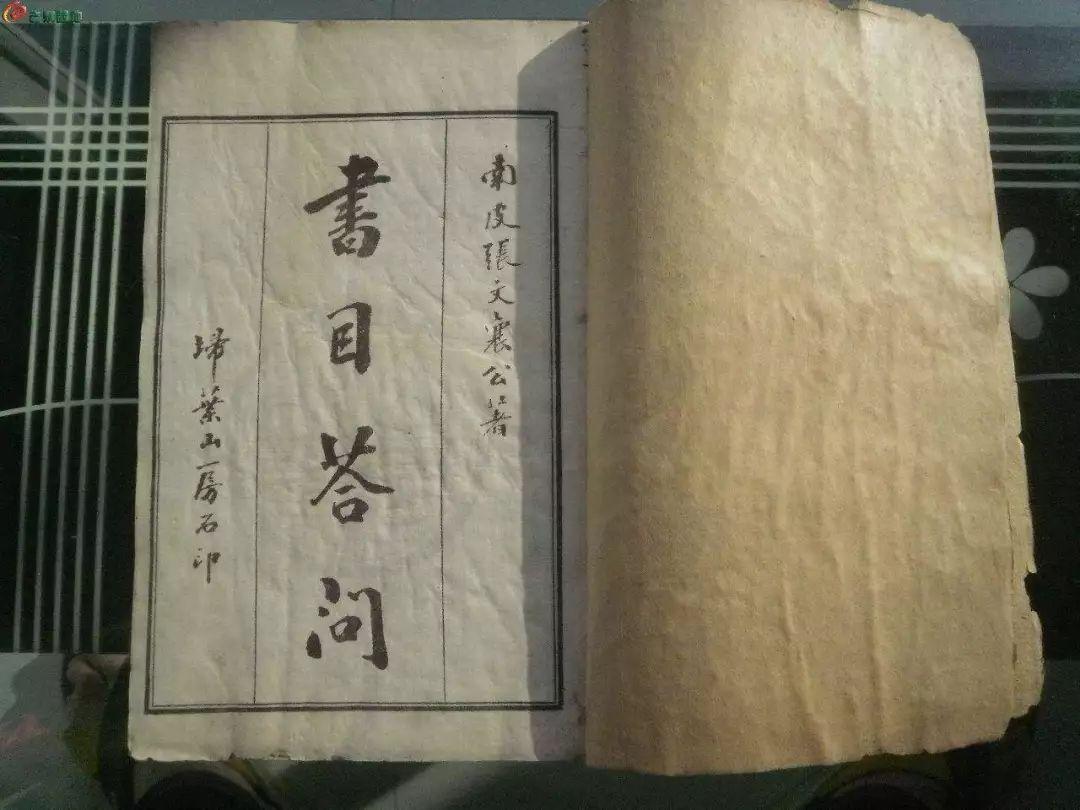 南皮張文襄公著
書目荅问
埽葉山房石印